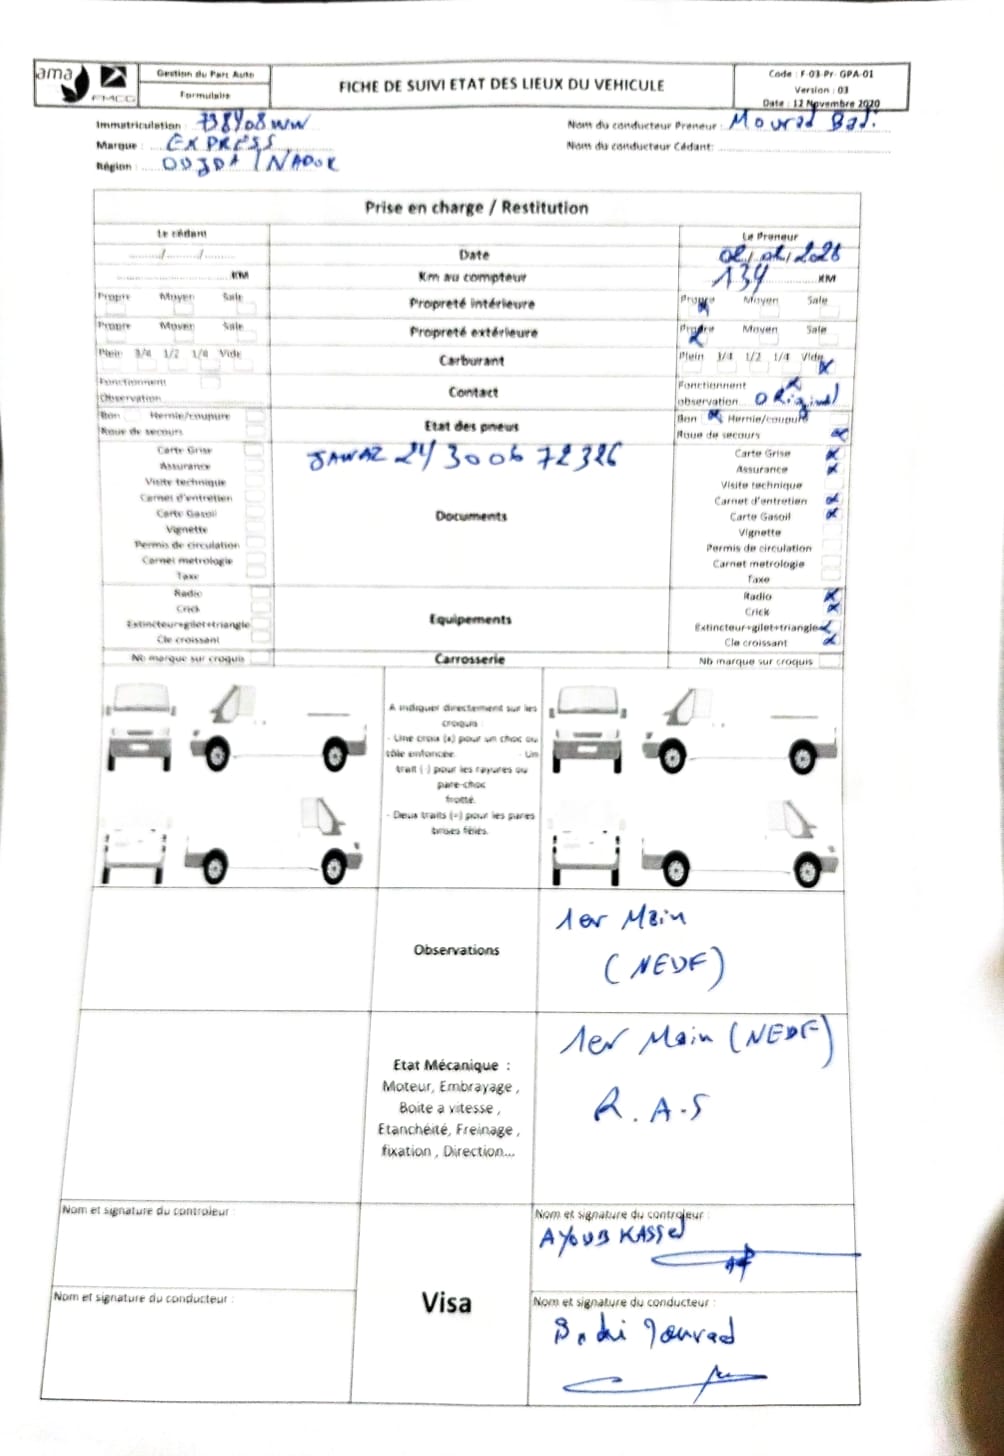 ama
FMCG
Gestion du Parc Auto
Formulaire
FICHE DE SUIVI ETAT DES LIEUX DU VEHICULE
Code : F-03-Pr- GPA-01
Version : 03
Date : 12 Novembre 2020
Immatriculation : 738408 WW
Nom du conducteur Preneur : Mourad Badi
Marque : EXPRESS
Nom du conducteur Cédant:
Région : OUJDA / NADOR
Prise en charge / Restitution
Le cédant
Le Preneur
......./......../........
Date
.......... KM
Km au compteur
134 KM
Propre Moyen Sale
Propreté intérieure
Propre Moyen Sale
Propre Moyen Sale
Propreté extérieure
Propre Moyen Sale
Plein 3/4 1/2 1/4 Vide
Carburant
Plein 3/4 1/2 1/4 Vide
Fonctionnent
Observation
Contact
Fonctionnent
observation... Original
Bon Hernie/coupure
Roue de secours
Etat des pneus
Bon Hernie/coupure
Roue de secours
JAWAZ 24 3006 72326
Carte Grise
Assurance
Visite technique
Carnet d'entretien
Carte Gasoil
Vignette
Permis de circulation
Carnet metrologie
Taxe
Documents
Carte Grise
Assurance
Visite technique
Carnet d'entretien
Carte Gasoil
Vignette
Permis de circulation
Carnet metrologie
Taxe
Radio
Crick
Extincteur+gilet+triangle
Cle croissant
Equipements
Radio
Crick
Extincteur+gilet+triangle
Cle croissant
Nb marque sur croquis
Carrosserie
Nb marque sur croquis
A indiquer directement sur les
croquis :
- Une croix (x) pour un choc ou
tôle enfoncée. - Un
trait (-) pour les rayures ou
pare-choc
frotté.
- Deux traits (=) pour les pares
brises fêlés.
Observations
1er Main
(NEUF)
Etat Mécanique :
Moteur, Embrayage,
Boite a vitesse,
Etanchéité, Freinage,
fixation, Direction...
1er Main (NEUF)
R.A.S
Nom et signature du controleur :
Nom et signature du controleur :
AYOUB KASSEL
Visa
Nom et signature du conducteur :
Nom et signature du conducteur :
Badi Mourad